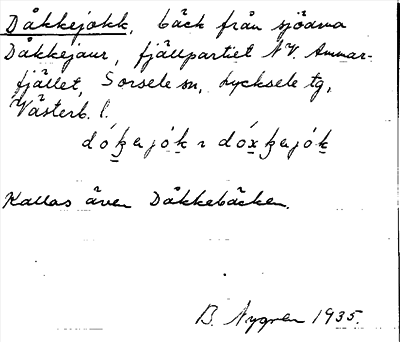 Dåkkejokk, bäck från sjöarna
Dåkkejaur, fjällpartiet NV. Ammar-
fjället, Sorsele sn, Lycksele tg,
Västerb. l.
Kallas även Dåkkebäcken.
B. Nygren 1935.